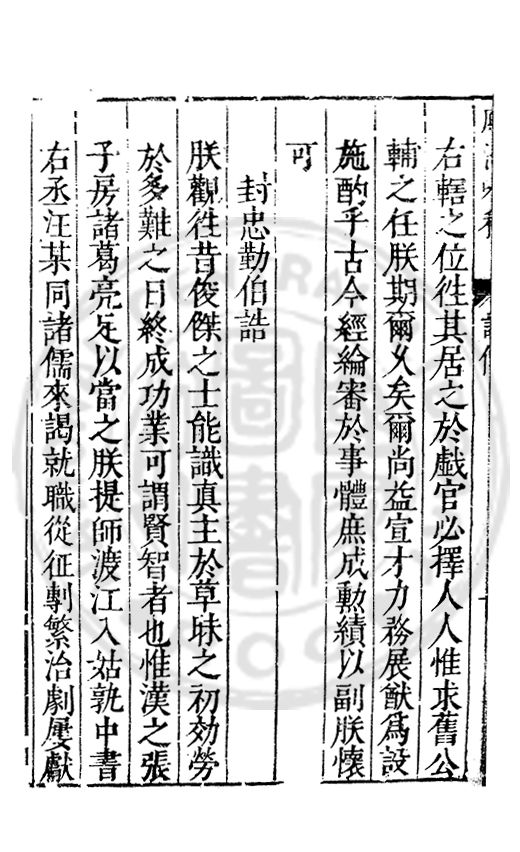 右轄之位徃其居之於戲官必擇人人惟求舊公
輔之任朕期爾久矣爾尚益宣才力務展猷爲設
施酌乎古今經綸審於事體庶成勲績以副朕懷
可
封忠勤伯誥
朕觀徃昔俊傑之士能識真主於草昧之初効勞
於多難之日終成功業可謂賢智者也惟漢之張
子房諸葛亮足以當之朕提師渡江入姑孰中書
右丞汪某同諸儒來謁就職從征剸繁治劇屢獻